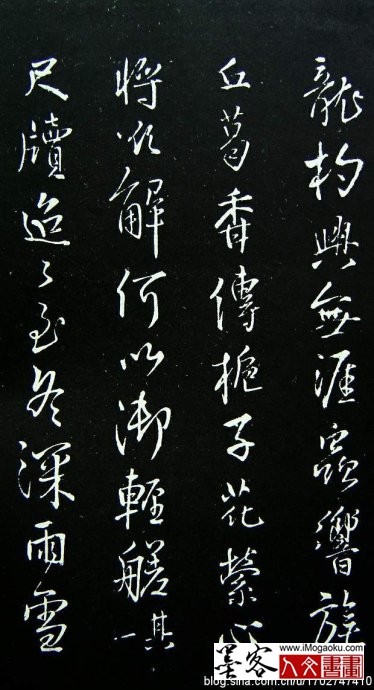 龍杓興無涯蟲響旄
丘葛香傳栀子花縈心
將以解何以御輕艖其一
尺牘迢迢至冬深雨雪
墨客
www.iMogaoku.com
人文書畫
blog.sina.com.cn/u/1702747410